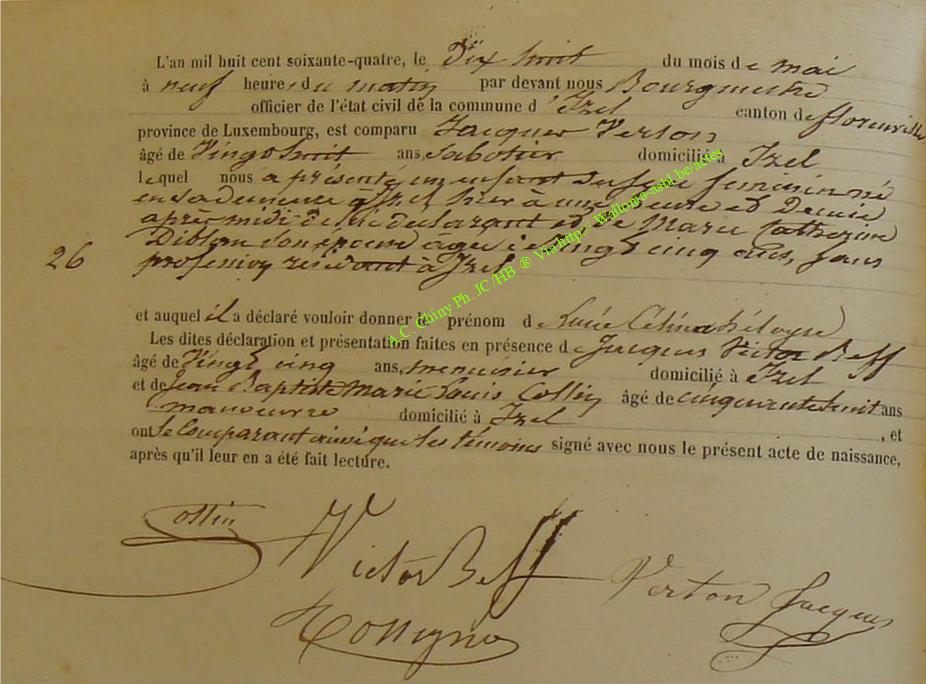 L'an mil huit cent soixante-quatre, le Dix huit du mois de mai
à neuf heures du matin par devant nous Bourgmestre
officier de l'état civil de la commune d'Izel canton de florenville
province de Luxembourg, est comparu Jacques Verton
âgé de Vingt huit ans, Sabotier domicilié à Izel
lequel nous a présenté un enfant du sexe feminin né
en sa demeure à Izel hier à une heure et Demie
après midi de lui declarant et de Marie Catherine
son epouse agée de vingt cinq ans, sans
26
profession résidant à Izel
et auquel il a déclaré vouloir donner le prénom de Lucie Célina Héloyse
Les dites déclaration et présentation faites en présence de Jacques Victor Beff
âgé de Vingt cinq ans, menuisier domicilié à Izel
et de Jean Baptiste Marie Louis Collin âgé de cinquante huit ans
manoeuvre domicilié à Izel , et
ont le Comparant ainsi que les témoins signé avec nous le présent acte de naissance,
après qu'il leur en a été fait lecture.
Collin
Victor Beff
Verton Jacques
A.C. Chiny Ph. JC/HB ® Via http://Wallonia-asbl.be/actes